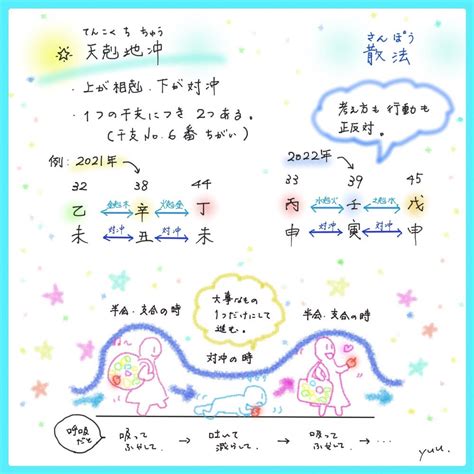 てんこくちちゅう
天剋地冲
さんぽう
散法
・上が相剋、下が対冲
・1つの干支につき 2つある。
(干支No.6番ちがい)
考え方も行動も
正反対。
例:2021年
32 38 44
金剋木 火剋金
乙 辛 丁
対冲 対冲
未 丑 未
2022年
33 39 45
水剋火 土剋水
丙 壬 戊
対冲 対冲
申 寅 申
半会・支合の時
大事なもの
1つだけにして
進む。
対冲の時
半会・支合の時
呼吸
だと
吸って
ふくらませて
→
吐いて
減らして
→
吸って
ふくらませて
→ ・・・
yuu.